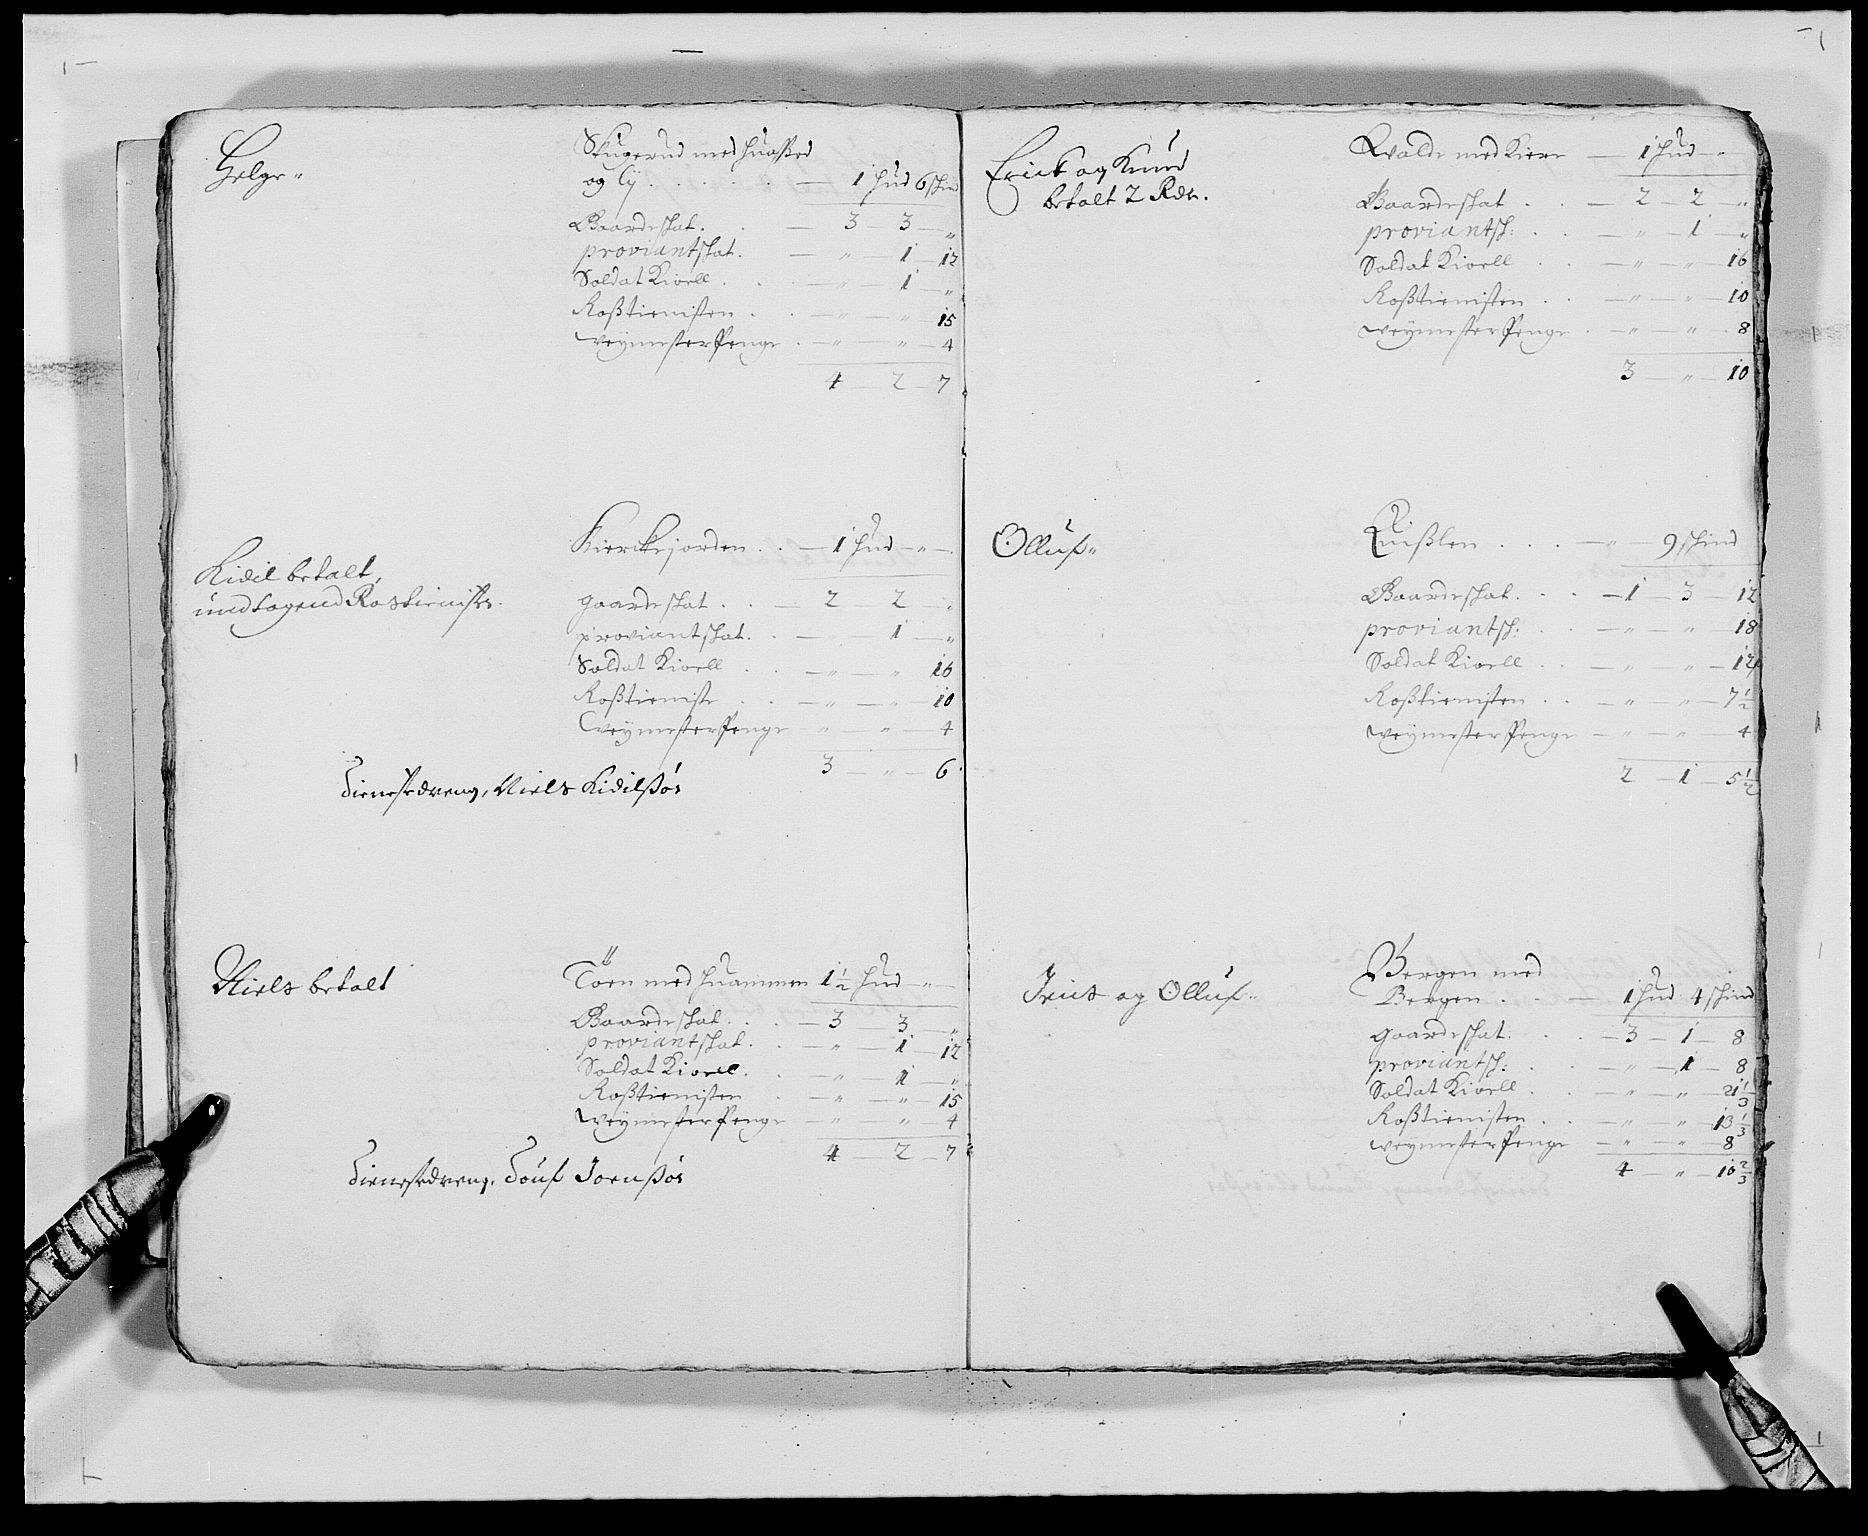 Helge„
Skugerud med huaßed
og Lij . . . . . — 1 hud 6 skin
Gaardeskat . . — 3 — 3 — „
proviantskat . — „ — 1 — 12
Soldat Kioell . . — „ — 1 — „
Roßtienisten . . — „ — „ — 15
veymester Penge . — „ — „ — 4
4 — 2 — 7
Kidil betalt,
undtagend Rostieniste.
Kierckejorden . . — 1 hud — „ —
gaardeskat . . — 2 — 2 — „
proviantskat . . — „ — 1 — „
Soldat Kioell . . — „ — „ — 16
Roßtieniste . . — „ — „ — 10
veymester Penge — „ — „ — 4
3 — „ — 6
Tienestedreng, Niels Kidilßør
Niels betalt
Töen med huammen 1½ hud — „ —
Gaardeskat . . . — 3 — 3 — „
proviantskat . . — „ — 1 — 12
Soldat Kioell . . — „ — 1 — „
Roßtienisten . — „ — „ — 15
veymester Penge — „ — „ — 4
4 — 2 — 7
Tienestedreng, Touf Joenßør
Erick og Knud
betalt 2 Rdr.
Walde med Kiere — 1 hud — „
Gaardeskat . . — 2 — 2 — „
proviantsk: . . — „ — 1 — „
Soldat Kioell . . — „ — „ — 16
Roßtienisten . . — „ — „ — 10
veymester Penge . — „ — „ — 8
3 — „ — 10
Olluf„
Quißlen . . . . — „ — 9 skind
Gaardeskat . . . — 1 — 3 — 12
proviantsk: . . — „ — „ — 18
Soldat Kioell . . — „ — „ — 12
Roßtienisten . . — „ — „ — 7½
veymester Penge — „ — „ — 4
2 — 1 — 5½
og Olluf„
Bergen med
Bergen . . . — 1 hud 4 skind
gaardeskat . . . — 3 — 1 — 8
proviantsk: . . — „ — 1 — 8
Soldat Kioell . . — „ — „ — 21⅓
Roßtienisten . . — „ — „ — 13⅓
veymester Penge — „ — „ — 8
4 — „ — 10⅔